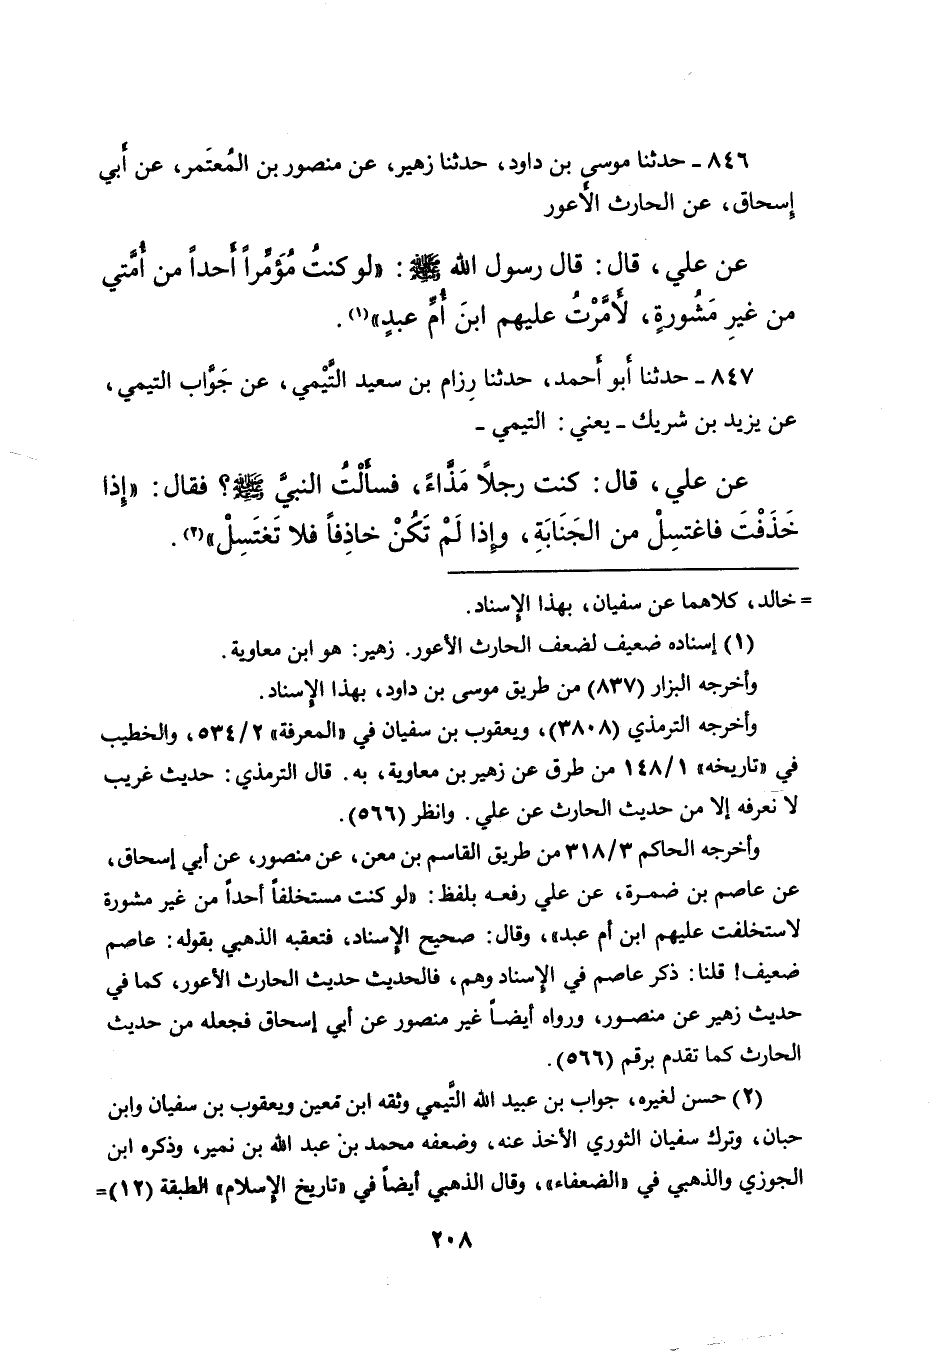 ٨٤٦ ـ حدثنا موسى بن داود، حدثنا زهير، عن منصور بن المُعتَمر، عن أَبي
إسحاق، عن الحارث الأَعور
عن علي، قال: قال رسول الله ﷺ: «لو كنتُ مُؤَمِّراً أَحداً من أُمَّتي
من غيرِ مَشُورةٍ، لَأَمَّرْتُ عليهم ابنَ أُمِّ عبدٍ»(١).
٨٤٧ ـ حدثنا أَبو أَحمد، حدثنا رِزام بن سعيد التَّيْمي، عن جَوَّاب التيمي،
عن يزيد بن شريك ـ يعني: التيمي ـ
عن علي، قال: كنت رجلاً مَذَّاءً، فسأَلْتُ النبيَّ ﷺ؟ فقال: «إِذا
خَذَفْتَ فاغتسِلْ من الجَنَابَةِ، وإِذا لَمْ تَكُنْ خاذِفاً فلا تَغتَسِلْ»(٢).
= خالد، كلاهما عن سفيان، بهذا الإسناد.
(١) إسناده ضعيف لضعف الحارث الأعور. زهير: هو ابن معاوية.
وأخرجه البزار (٨٣٧) من طريق موسى بن داود، بهذا الإسناد.
وأخرجه الترمذي (٣٨٠٨)، ويعقوب بن سفيان في «المعرفة» ٥٣٤/٢، والخطيب
في «تاريخه» ١٤٨/١ من طرق عن زهير بن معاوية، به. قال الترمذي: حديث غريب
لا نعرفه إلا من حديث الحارث عن علي. وانظر (٥٦٦).
وأخرجه الحاكم ٣١٨/٣ من طريق القاسم بن معن، عن منصور، عن أبي إسحاق،
عن عاصم بن ضمرة، عن علي رفعه بلفظ: «لو كنت مستخلفاً أحداً من غير مشورة
لاستخلفت عليهم ابن أم عبد»، وقال: صحيح الإسناد، فتعقبه الذهبي بقوله: عاصم
ضعيف! قلنا: ذكر عاصم في الإسناد وهم، فالحديث حديث الحارث الأعور، كما في
حديث زهير عن منصور، ورواه أيضاً غير منصور عن أبي إسحاق فجعله من حديث
الحارث كما تقدم برقم (٥٦٦).
(٢) حسن لغيره، جواب بن عبيد الله التَّيمي وثقه ابن معين ويعقوب بن سفيان وابن
حبان، وترك سفيان الثوري الأخذ عنه، وضعفه محمد بن عبد الله بن نمير، وذكره ابن
الجوزي والذهبي في «الضعفاء»، وقال الذهبي أيضاً في «تاريخ الإسلام» الطبقة (١٢)=
٢٠٨